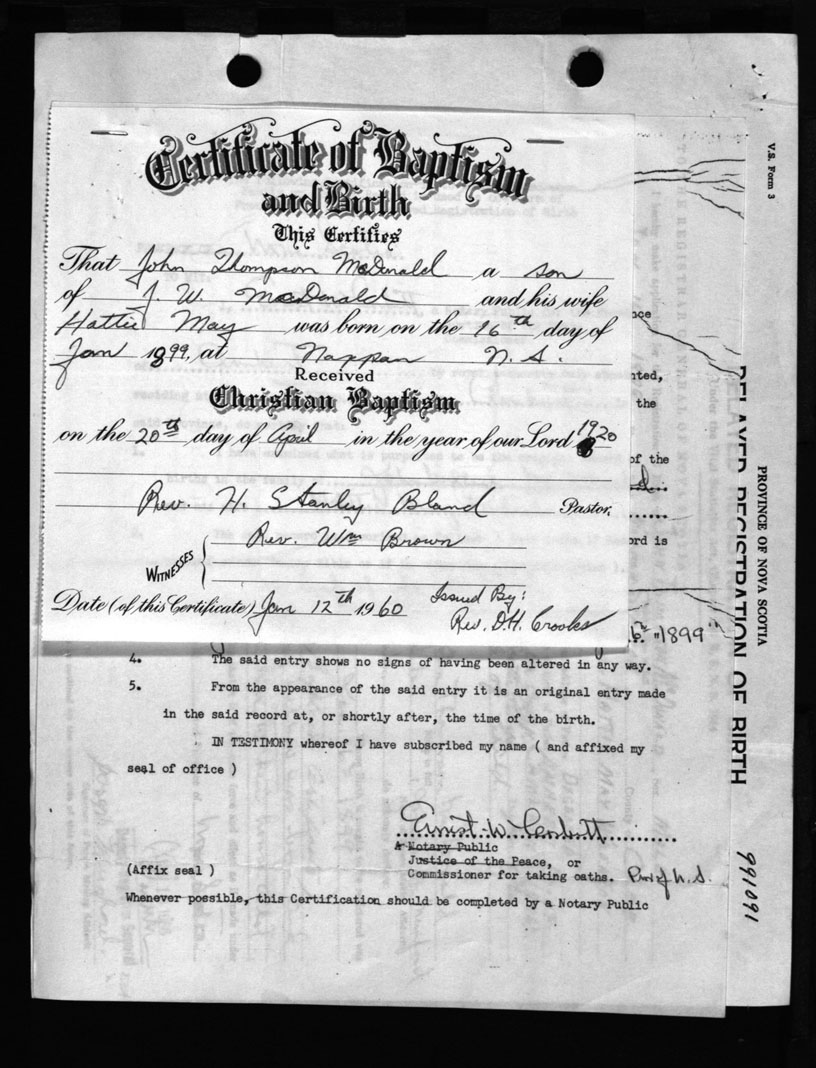 Certificate of Baptism
and Birth
This Certifies
That John Thompson McDonald a son
of J. W. MacDonald and his wife
Hattie May was born on the 16th day of
Jan 1899, at Nappan N.S.
Received
Christian Baptism
on the 20th day of April in the year of our Lord 1920
Rev. H. Stanley Bland Pastor.
WITNESSES
Rev. Wm Brown
Date (of this Certificate) Jan 12th 1960
Issued By:
Rev. D.H. Crooks
nce
nted,
the
of the
d
ord is
"1899"
4. The said entry shows no signs of having been altered in any way.
5. From the appearance of the said entry it is an original entry made
in the said record at, or shortly after, the time of the birth.
IN TESTIMONY whereof I have subscribed my name ( and affixed my
seal of office )
A Notary Public
Justice of the Peace, or
(Affix seal )
Commissioner for taking oaths. Prov of N.S.
Whenever possible, this Certification should be completed by a Notary Public
V.S. Form 3
PROVINCE OF NOVA SCOTIA
DELAYED REGISTRATION OF BIRTH
991091